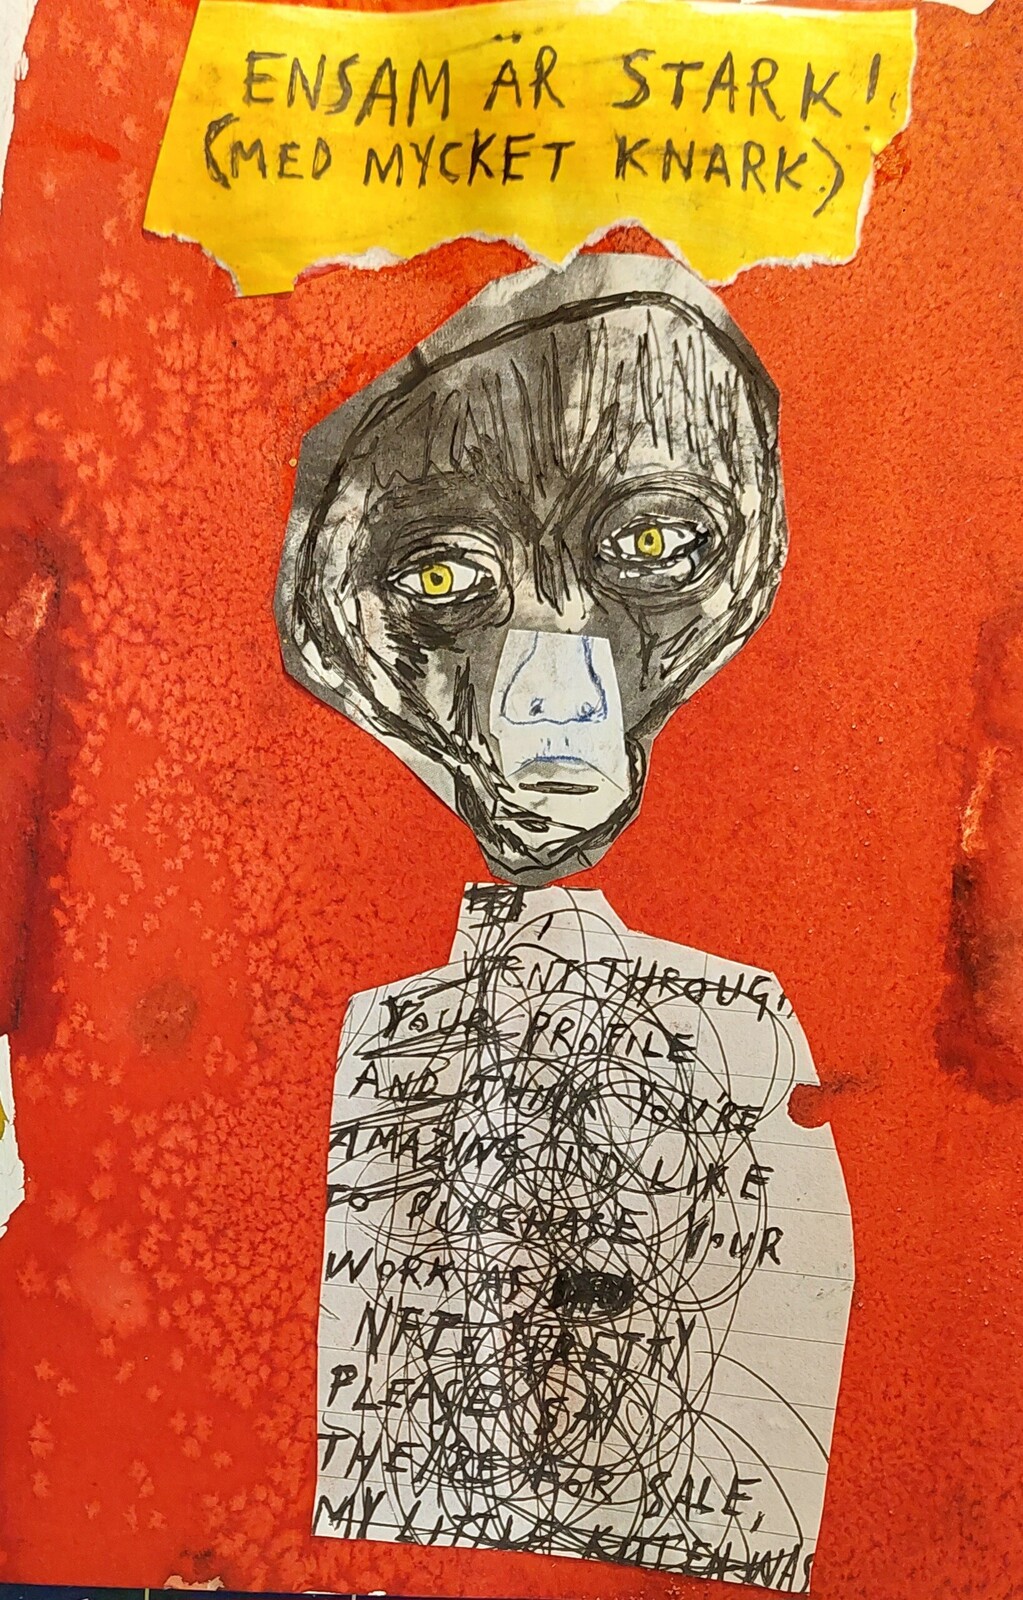 ENSAM ÄR STARK!
(MED MYCKET KNARK)
I
WENT THROUGH
YOUR PROFILE
AND THINK YOU'RE
AMAZING I'D LIKE
TO PURCHASE YOUR
WORK AS
NFTS PRETTY
PLEASE SAY
THEY'RE FOR SALE,
MY LITTLE KITTEN WAS